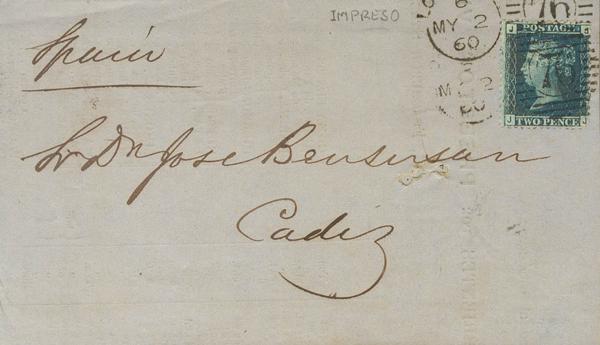 IMPRESO
LO
6
MY 2
60
76
M 2
60
POSTAGE
J J
TWO PENCE
Spain
Sr Dn Jose Bensusan
Cadiz